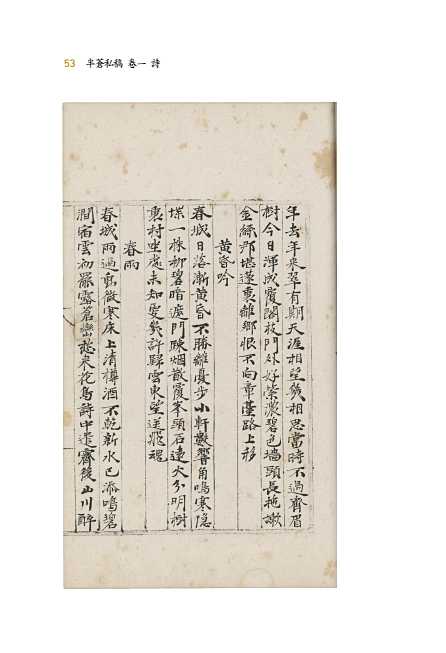 53 半蒼私稿 卷一 詩
年去年來翠有期天涯相望幾相思當時不過齊眉
樹今日渾成覆閣枝門外好縈濃碧色墻頭長拖嫩
金絲那堪蓬裏離鄉恨不向章臺路上移
黃昏吟
春城日落漸黃昏不勝離憂步小軒數聲角鳴寒隱
堞一株柳碧暗遮門映烟散覆峯頭石遠火分明樹
裏村坐處未知更幾許歸雲東望送飛魂
春雨
春城雨過動微寒床上清樽酒不乾新水已添鳴碧
澗宿雲初羃露蒼巒愁來花鳥詩中遣霽後山川醉